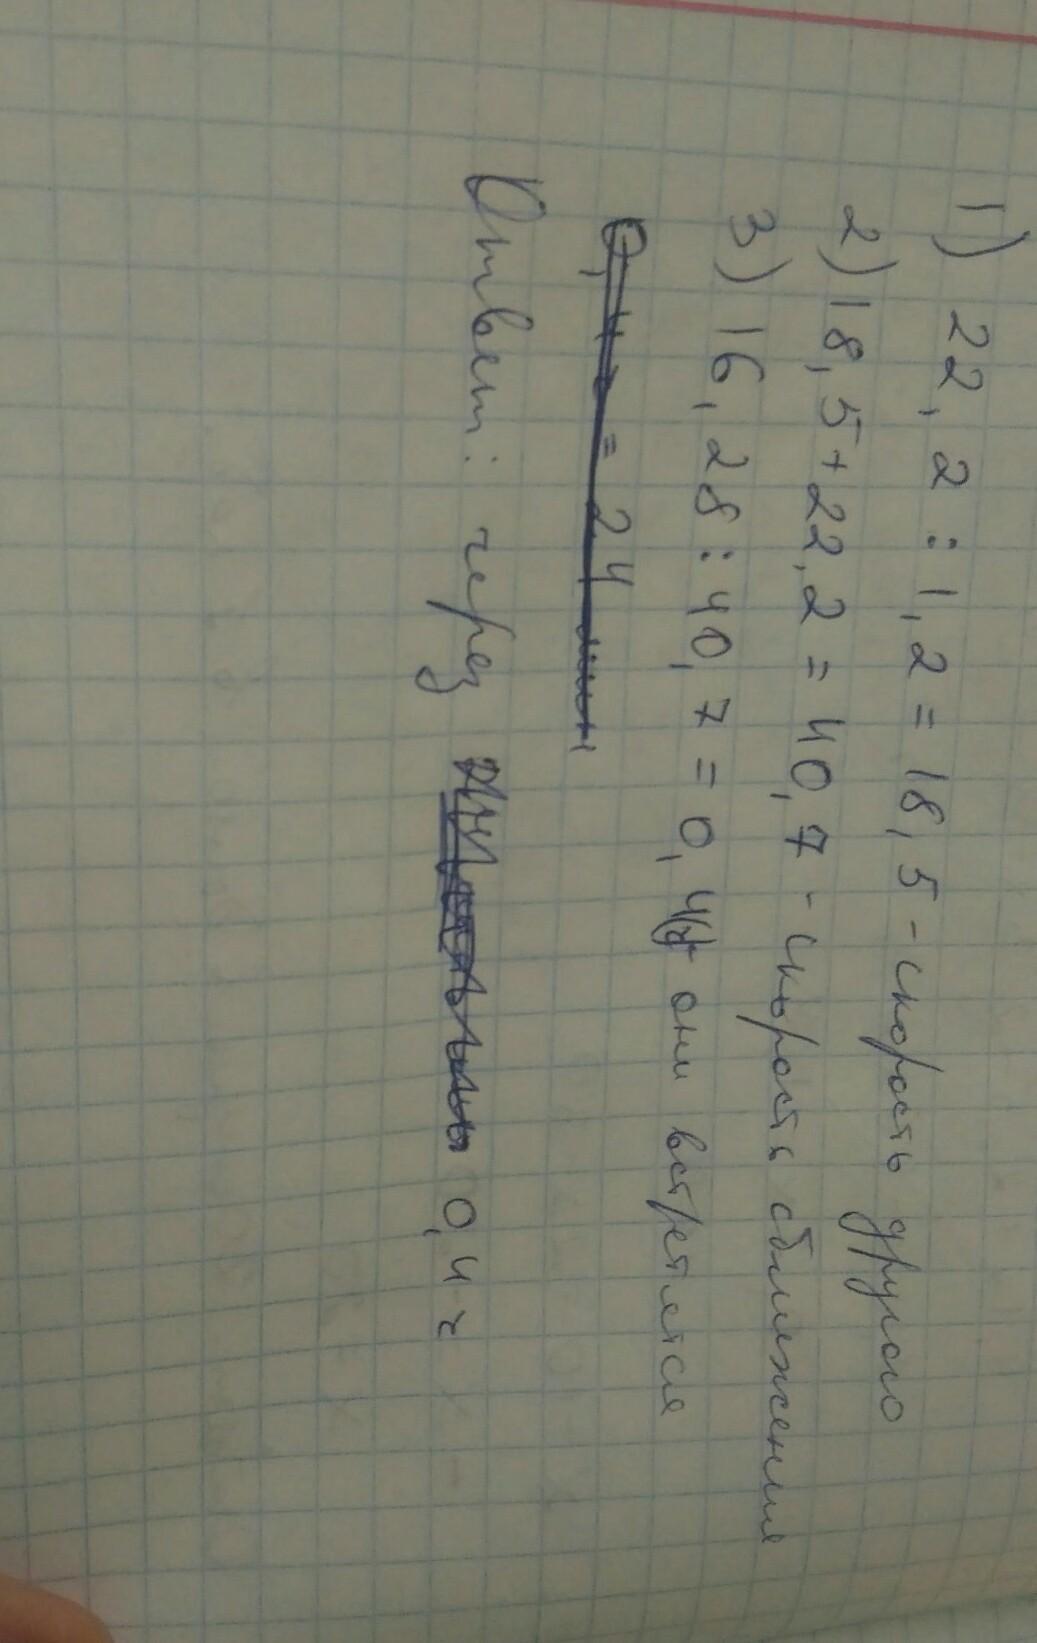 1) 22,2 : 1,2 = 18,5 - скорость другого
2) 18,5 + 22,2 = 40,7 - скорость сближения
3) 16,28 : 40,7 = 0,4 они встретятся
0,4 ч = 24 мин
Ответ: через 0,4 ч